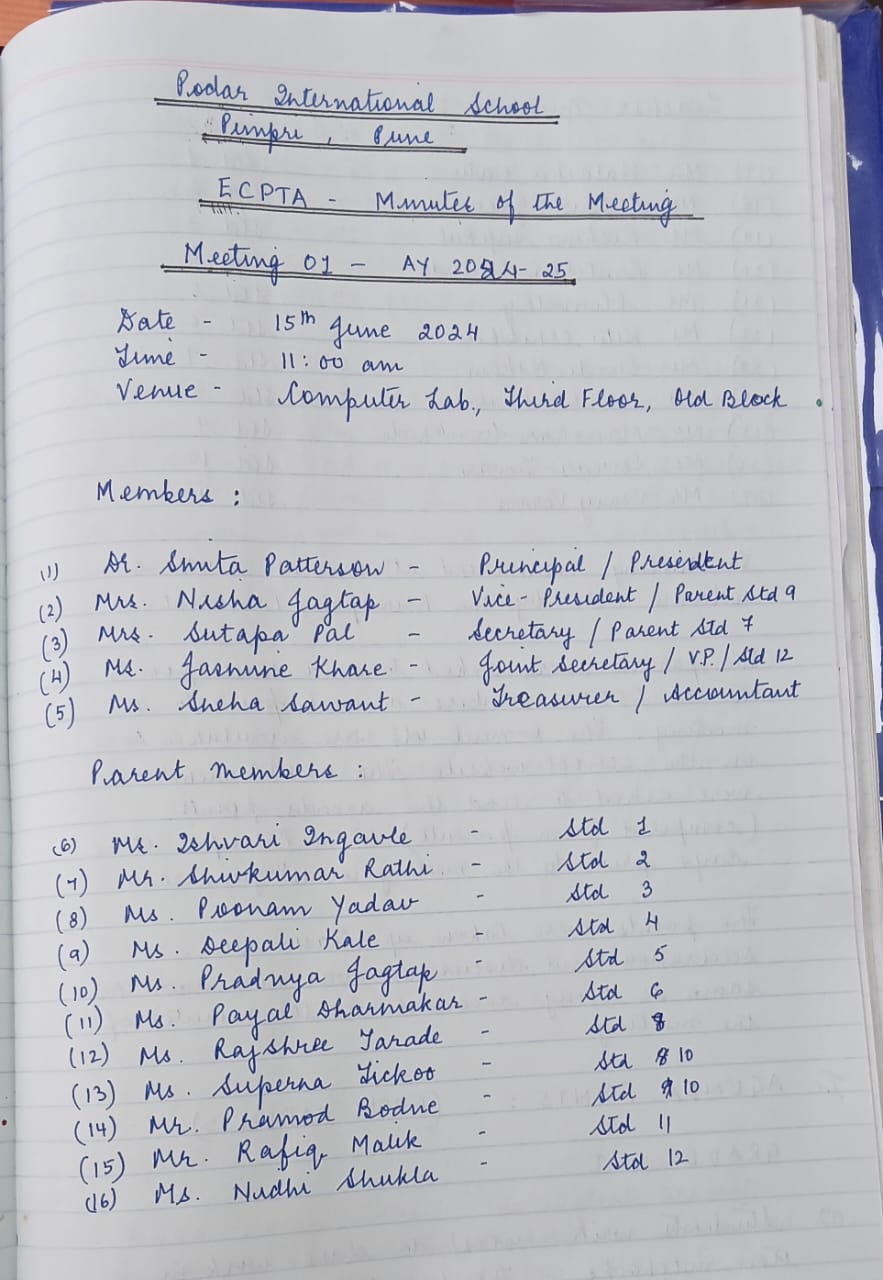 Podar International School
Pimpri, Pune
ECPTA - Minutes of the Meeting
Meeting 01 - AY 2024-25
Date - 15th June 2024
Time - 11:00 am
Venue - Computer Lab., Third Floor, Old Block.
Members :
(1) Dr. Smita Patterson - Principal / President
(2) Mrs. Nisha Jagtap - Vice-President / Parent Std 9
(3) Mrs. Sutapa Pal - Secretary / Parent Std 7
(4) Ms. Jasmine Khare - Joint Secretary / V.P. / Std 12
(5) Ms. Sneha Sawant - Treasurer / Accountant
Parent members :
(6) Ms. Ishvari Ingavle - Std 1
(7) Mr. Shivkumar Rathi - Std 2
(8) Ms. Poonam Yadav - Std 3
(9) Ms. Deepali Kale - Std 4
(10) Ms. Pradnya Jagtap - Std 5
(11) Ms. Payal Dharmakar - Std 6
(12) Ms. Rajshree Tarade - Std 8
(13) Ms. Superna Tickoo - Std 10
(14) Mr. Pramod Bodne - Std 10
(15) Mr. Rafiq Malik - Std 11
(16) Ms. Nidhi Shukla - Std 12